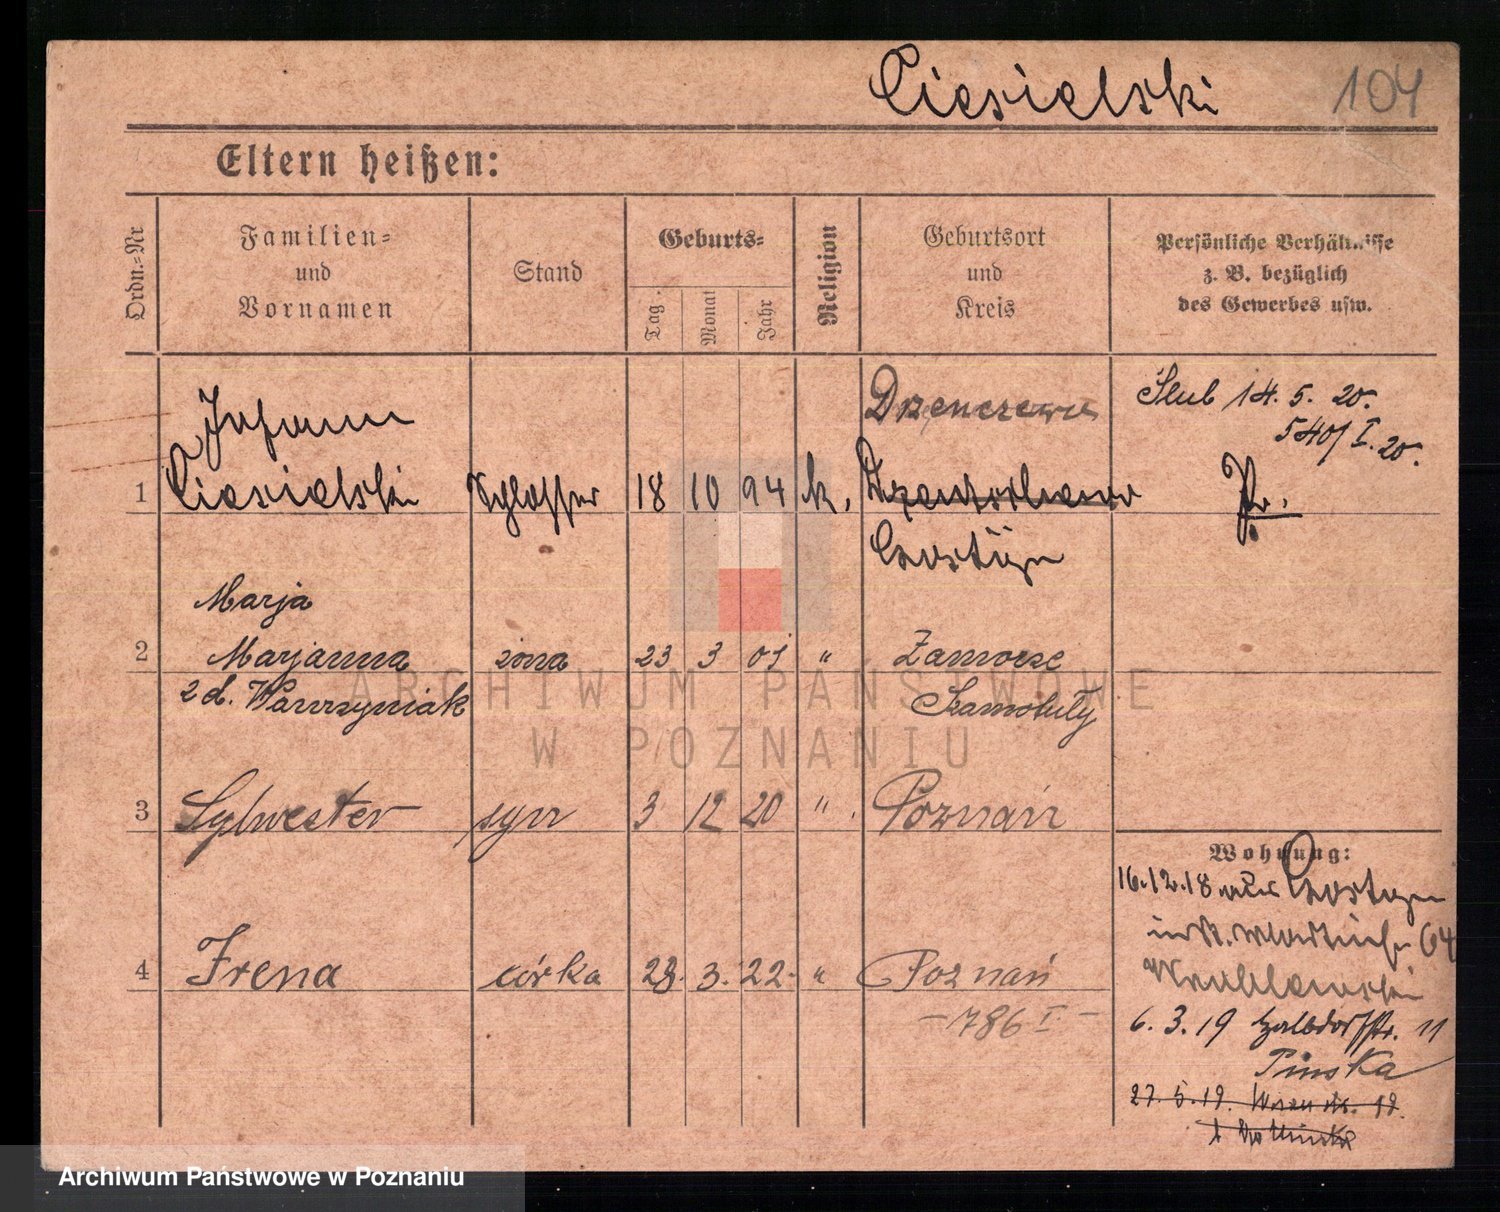 Ciesielski 104
Eltern heißen:
Ordn.-Nr
Familien-
und
Vornamen
Stand
Geburts-
Tag
Monat
Jahr
Religion
Geburtsort
und
Kreis
Persönliche Verhältnisse
z. B. bezüglich
des Gewerbes usw.
Johann
Drzenczewo
Ślub 14. 5. 20.
540/I. 20.
1 Ciesielski Schlosser 18 10 94 k. Pr.
Gostyn
Marja
2 Marjanna żona 23 3 01 " Zamorze
z d. Wawrzyniak Szamotuły
3 Sylwester syn 3 12 20 " Poznań
Wohnung:
16.12.18 aus Gostyn
64
4 Irena córka 28. 3. 22. " Poznań
- 786 I -
6. 3. 19 11
Pinska
27. 5. 19. 12.
ARCHIWUM PAŃSTWOWE
W POZNANIU
Archiwum Państwowe w Poznaniu